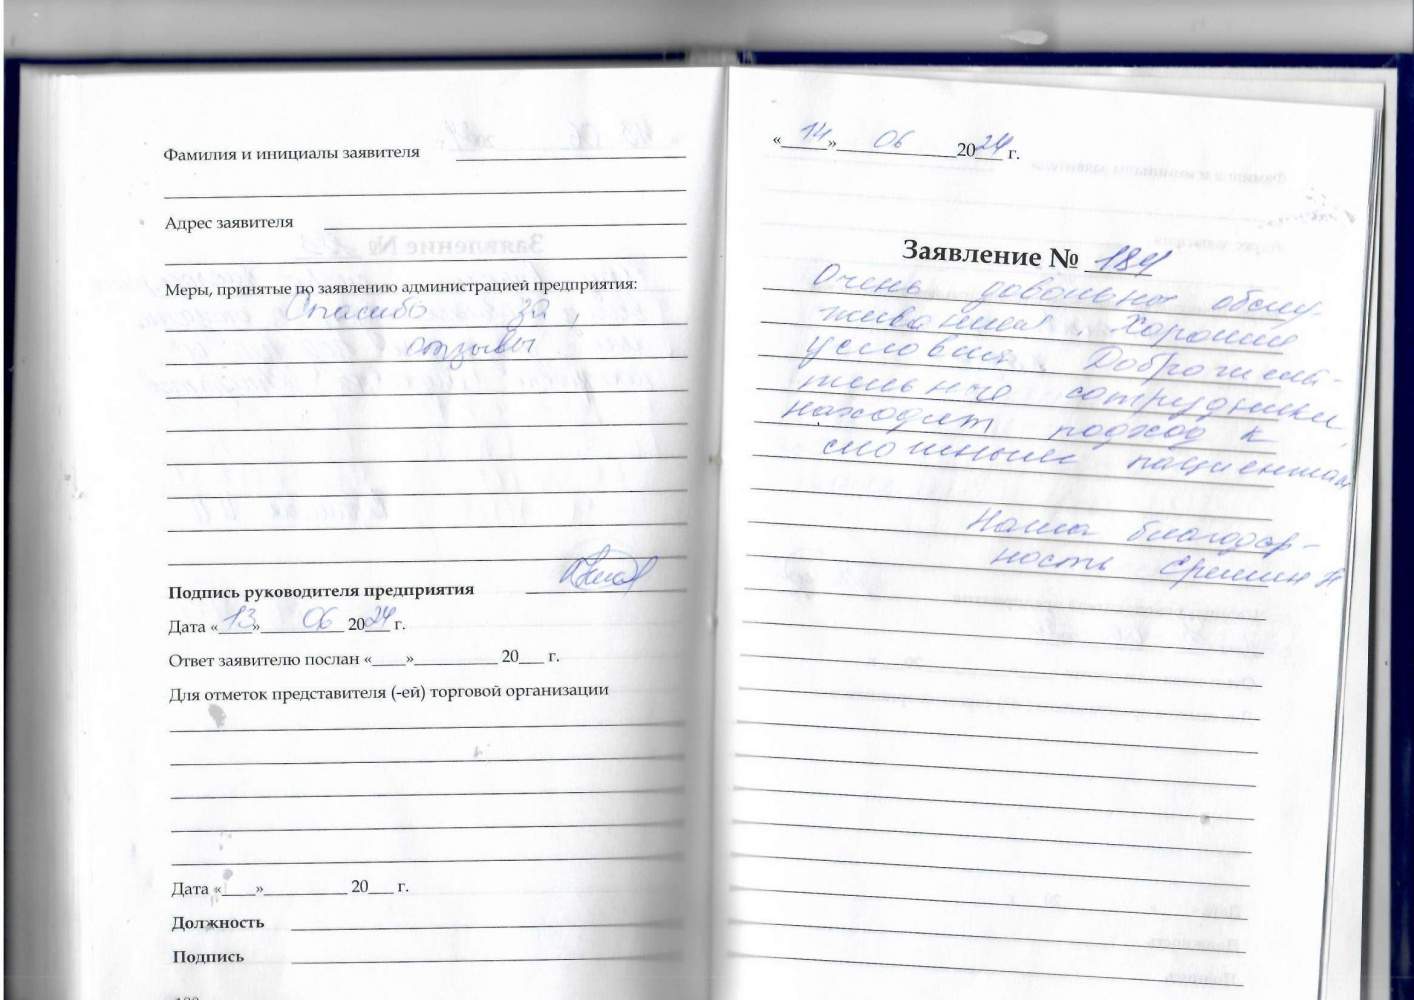 Фамилия и инициалы заявителя
Адрес заявителя
Меры, принятые по заявлению администрацией предприятия:
Спасибо за
отзывы
Подпись руководителя предприятия
Дата «13» 06 2024 г.
Ответ заявителю послан «____»__________ 20___ г.
Для отметок представителя (-ей) торговой организации
Дата «____»__________ 20___ г.
Должность
Подпись
«14» 06 2024 г.
Заявление № 184
Очень довольны обслу-
живанием Хорошие
условия. Доброжела-
тельные сотрудники,
находят подход к
сложным пациентам
Наша благодар-
ность